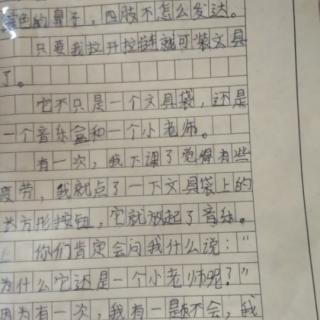 色的鼻子，四肢不怎么发达。
只要我拉开拉链就可装文具
了。
它不只是一个文具袋，还是
一个音乐盒和一个小老师。
有一次，我下课了觉得有些
疲劳，我就点了一下文具袋上的
长方形按钮，它就放起了音乐。
你们肯定会问我什么说：“
为什么它还是一个小老师呢？”
因为有一次，我有一题不会，我